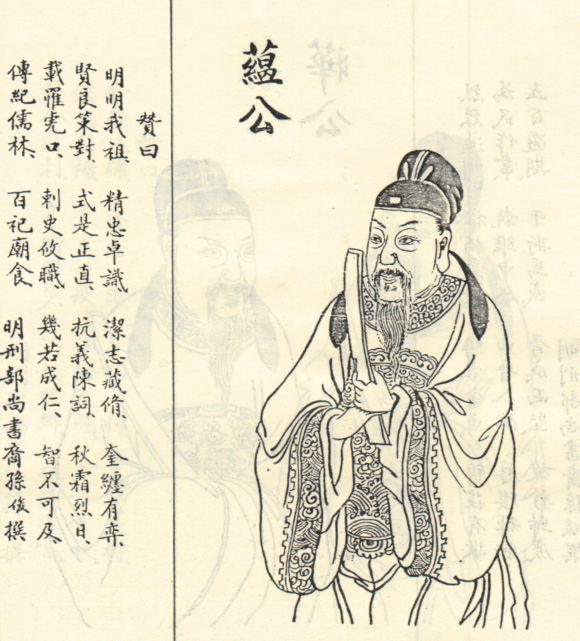 蘊公
贊曰
明明我祖、精忠卓識、潔志藏脩、奎纏有奕、
賢良策對、式是正直、抗義陳詞、秋霜烈日、
載罹虎口、刺史攸職、幾若成仁、智不可及、
傳紀儒林、百祀廟食
明刑部尚書裔孫俊撰